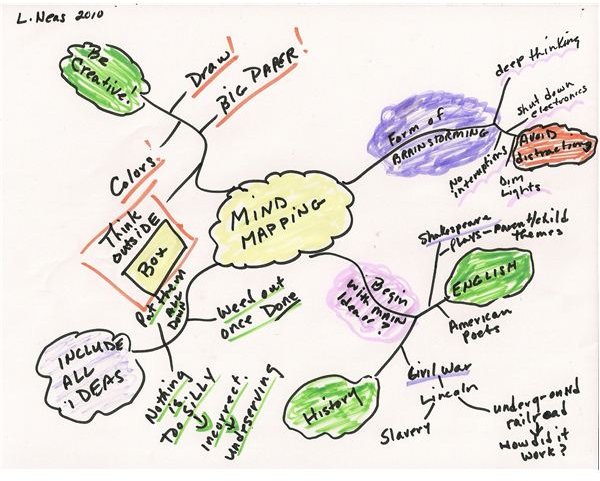 L. Neas 2010
Be
Creative!
Draw!
BIG PAPER!
Colors!
Think
outside
Box
MIND
MAPPING
Form of
BRAINSTORMING
deep thinking
shut down
electronics
AVOID
distractions
No
interruptions
Dim
Lights
Begin
with MAIN
Idea
Shakespeare
plays - parent/child
themes
ENGLISH
American
Poets
Civil War
Lincoln
Slavery
underground
railroad
How did it
work?
History
INCLUDE
ALL
iDEAS
Put them
Down
Weed out
once Done
Nothing
is
too SILLY
incorrect
underserving